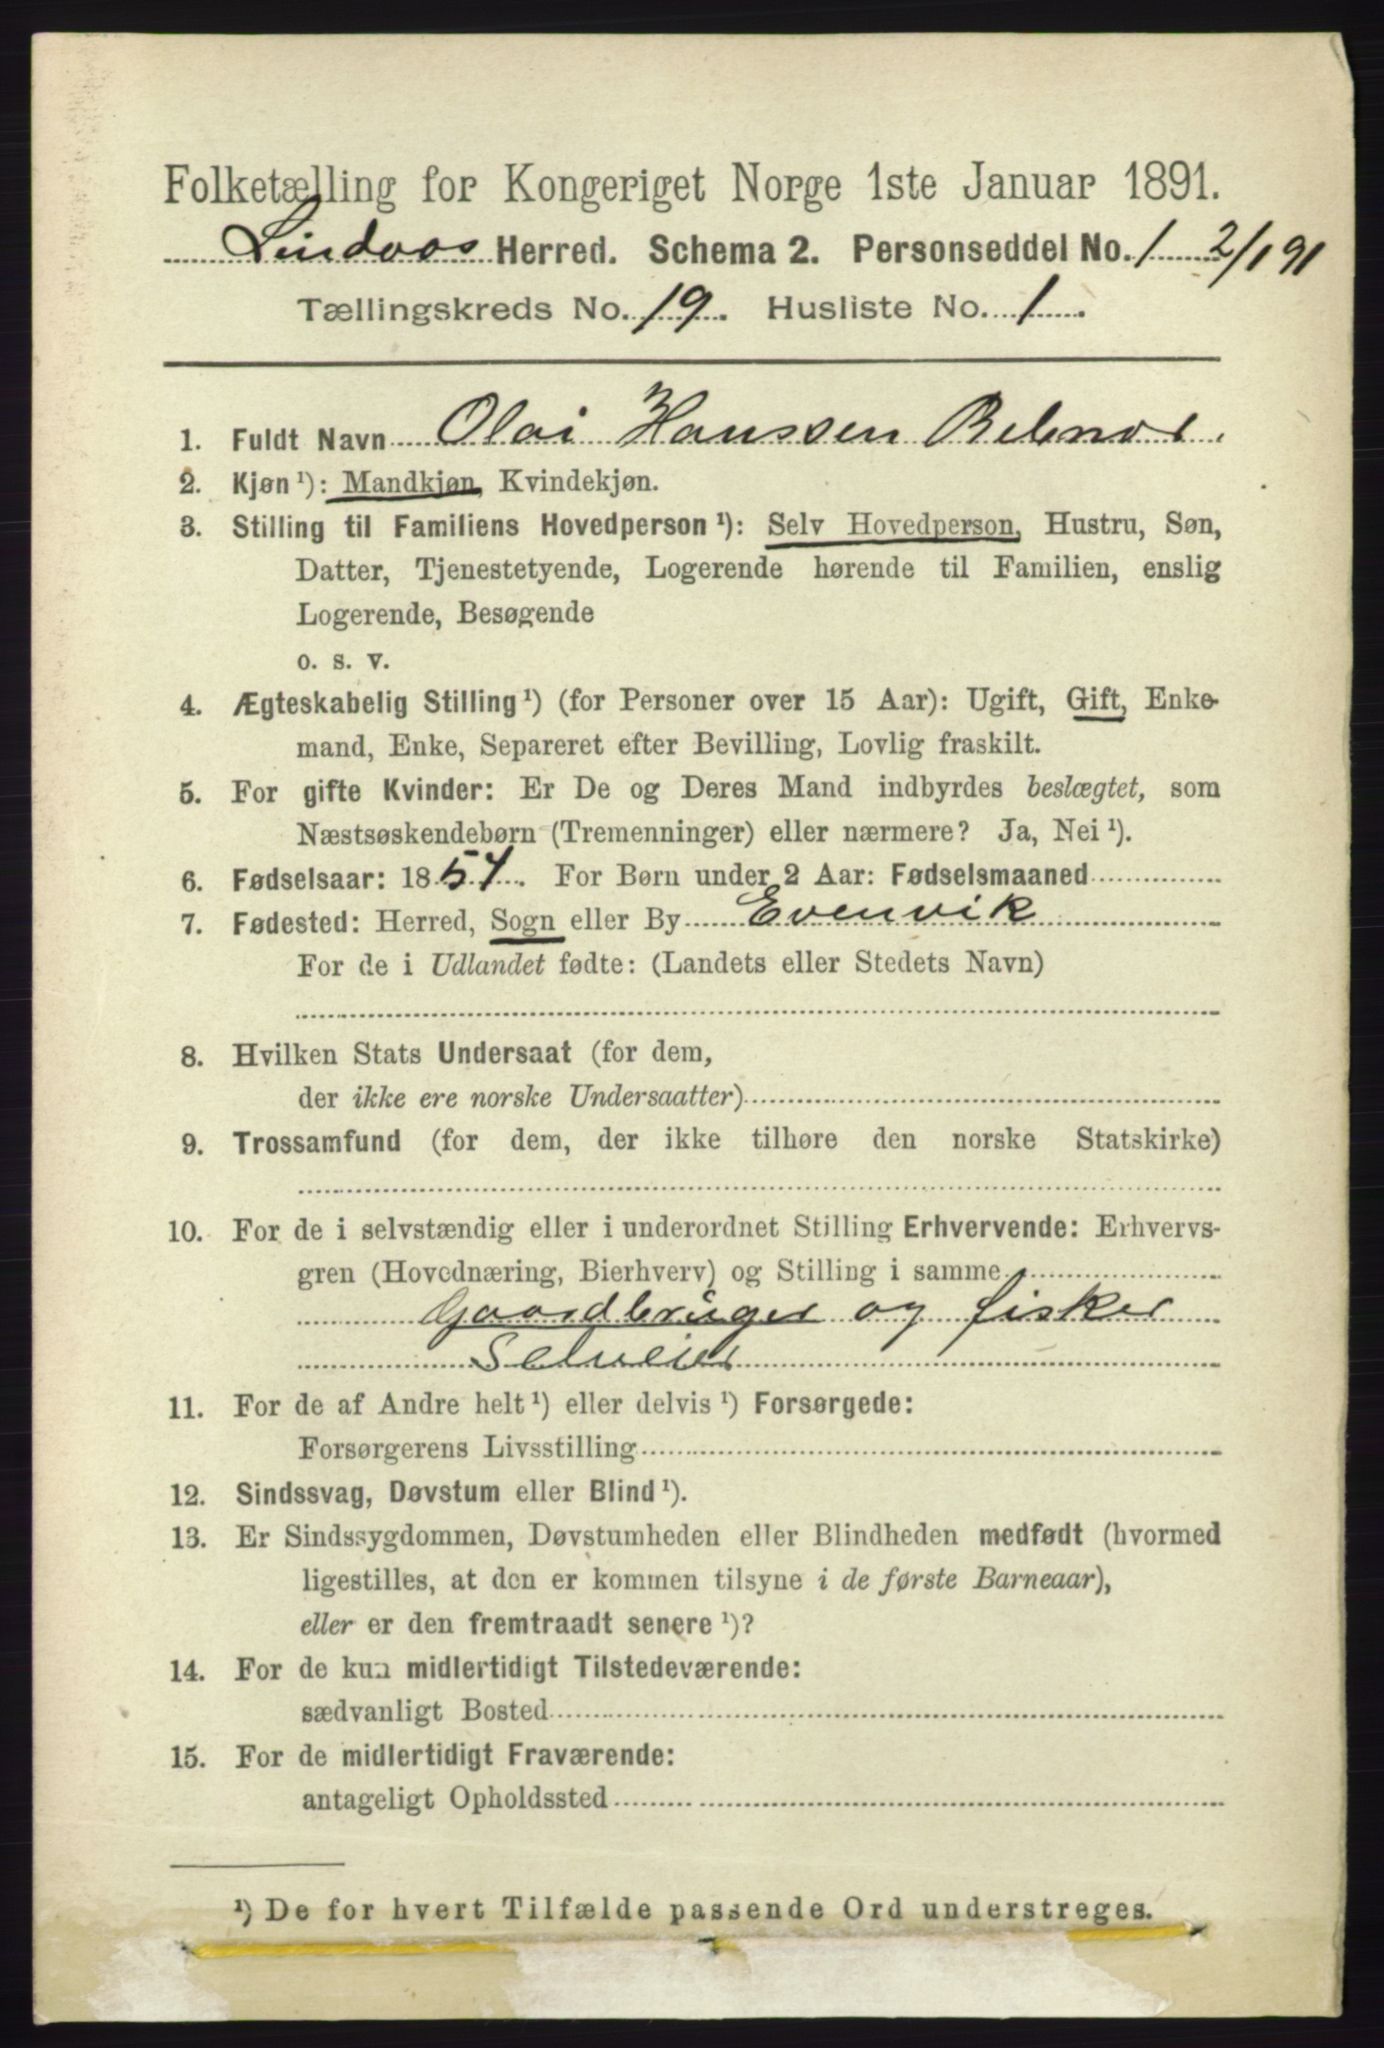 Folketælling for Kongeriget Norge 1ste Januar 1891.
Lindaas Herred. Schema 2. Personseddel No. 1 2/1 91
Tællingskreds No. 19. Husliste No. 1.
1. Fuldt Navn Olai Hanssen
2. Kjøn ¹): Mandkjøn, Kvindekjøn.
3. Stilling til Familiens Hovedperson ¹): Selv Hovedperson, Hustru, Søn,
Datter, Tjenestetyende, Logerende hørende til Familien, enslig
Logerende, Besøgende
o. s. v.
4. Ægteskabelig Stilling ¹) (for Personer over 15 Aar): Ugift, Gift, Enke-
mand, Enke, Separeret efter Bevilling, Lovlig fraskilt.
5. For gifte Kvinder: Er De og Deres Mand indbyrdes beslægtet, som
Næstsøskendebørn (Tremenninger) eller nærmere? Ja, Nei ¹).
6. Fødselsaar: 1857. For Børn under 2 Aar: Fødselsmaaned
7. Fødested: Herred, Sogn eller By Evenvik
For de i Udlandet fødte: (Landets eller Stedets Navn)
8. Hvilken Stats Undersaat (for dem,
der ikke ere norske Undersaatter)
9. Trossamfund (for dem, der ikke tilhøre den norske Statskirke)
10. For de i selvstændig eller i underordnet Stilling Erhvervende: Erhvervs-
gren (Hovednæring, Bierhverv) og Stilling i samme
Gaardbruger og fisker
Selveier
11. For de af Andre helt ¹) eller delvis ¹) Forsørgede:
Forsørgerens Livsstilling
12. Sindssvag, Døvstum eller Blind ¹).
13. Er Sindssygdommen, Døvstumheden eller Blindheden medfødt (hvormed
ligestilles, at den er kommen tilsyne i de første Barneaar),
eller er den fremtraadt senere ¹)?
14. For de kun midlertidigt Tilstedeværende:
sædvanligt Bosted
15. For de midlertidigt Fraværende:
antageligt Opholdssted
¹) De for hvert Tilfælde passende Ord understreges.